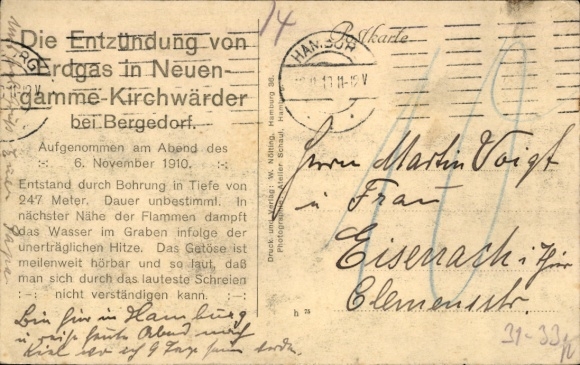 Die Entzündung von
Erdgas in Neuen-
gamme-Kirchwärder
bei Bergedorf.
Aufgenommen am Abend des
:-: 6. November 1910. :-:
Entstand durch Bohrung in Tiefe von
247 Meter. Dauer unbestimmt. In
nächster Nähe der Flammen dampft
das Wasser im Graben infolge der
unerträglichen Hitze. Das Getöse ist
meilenweit hörbar und so laut, daß
man sich durch das lauteste Schreien
:-: nicht verständigen kann. :-:
Bin hier in Hamburg
u. reise heute Abend nach
Kiel wo ich 9 Tage sein werde.
Druck und Verlag: W. Nölting, Hamburg 36.
Photographie: Atelier Schaul, Hamburg
14
Postkarte
HAMBURG
11-12 V
Herrn Martin Voigt
u Frau
Eisenach i. Thür
Clemensstr.
h 75
10
31-33